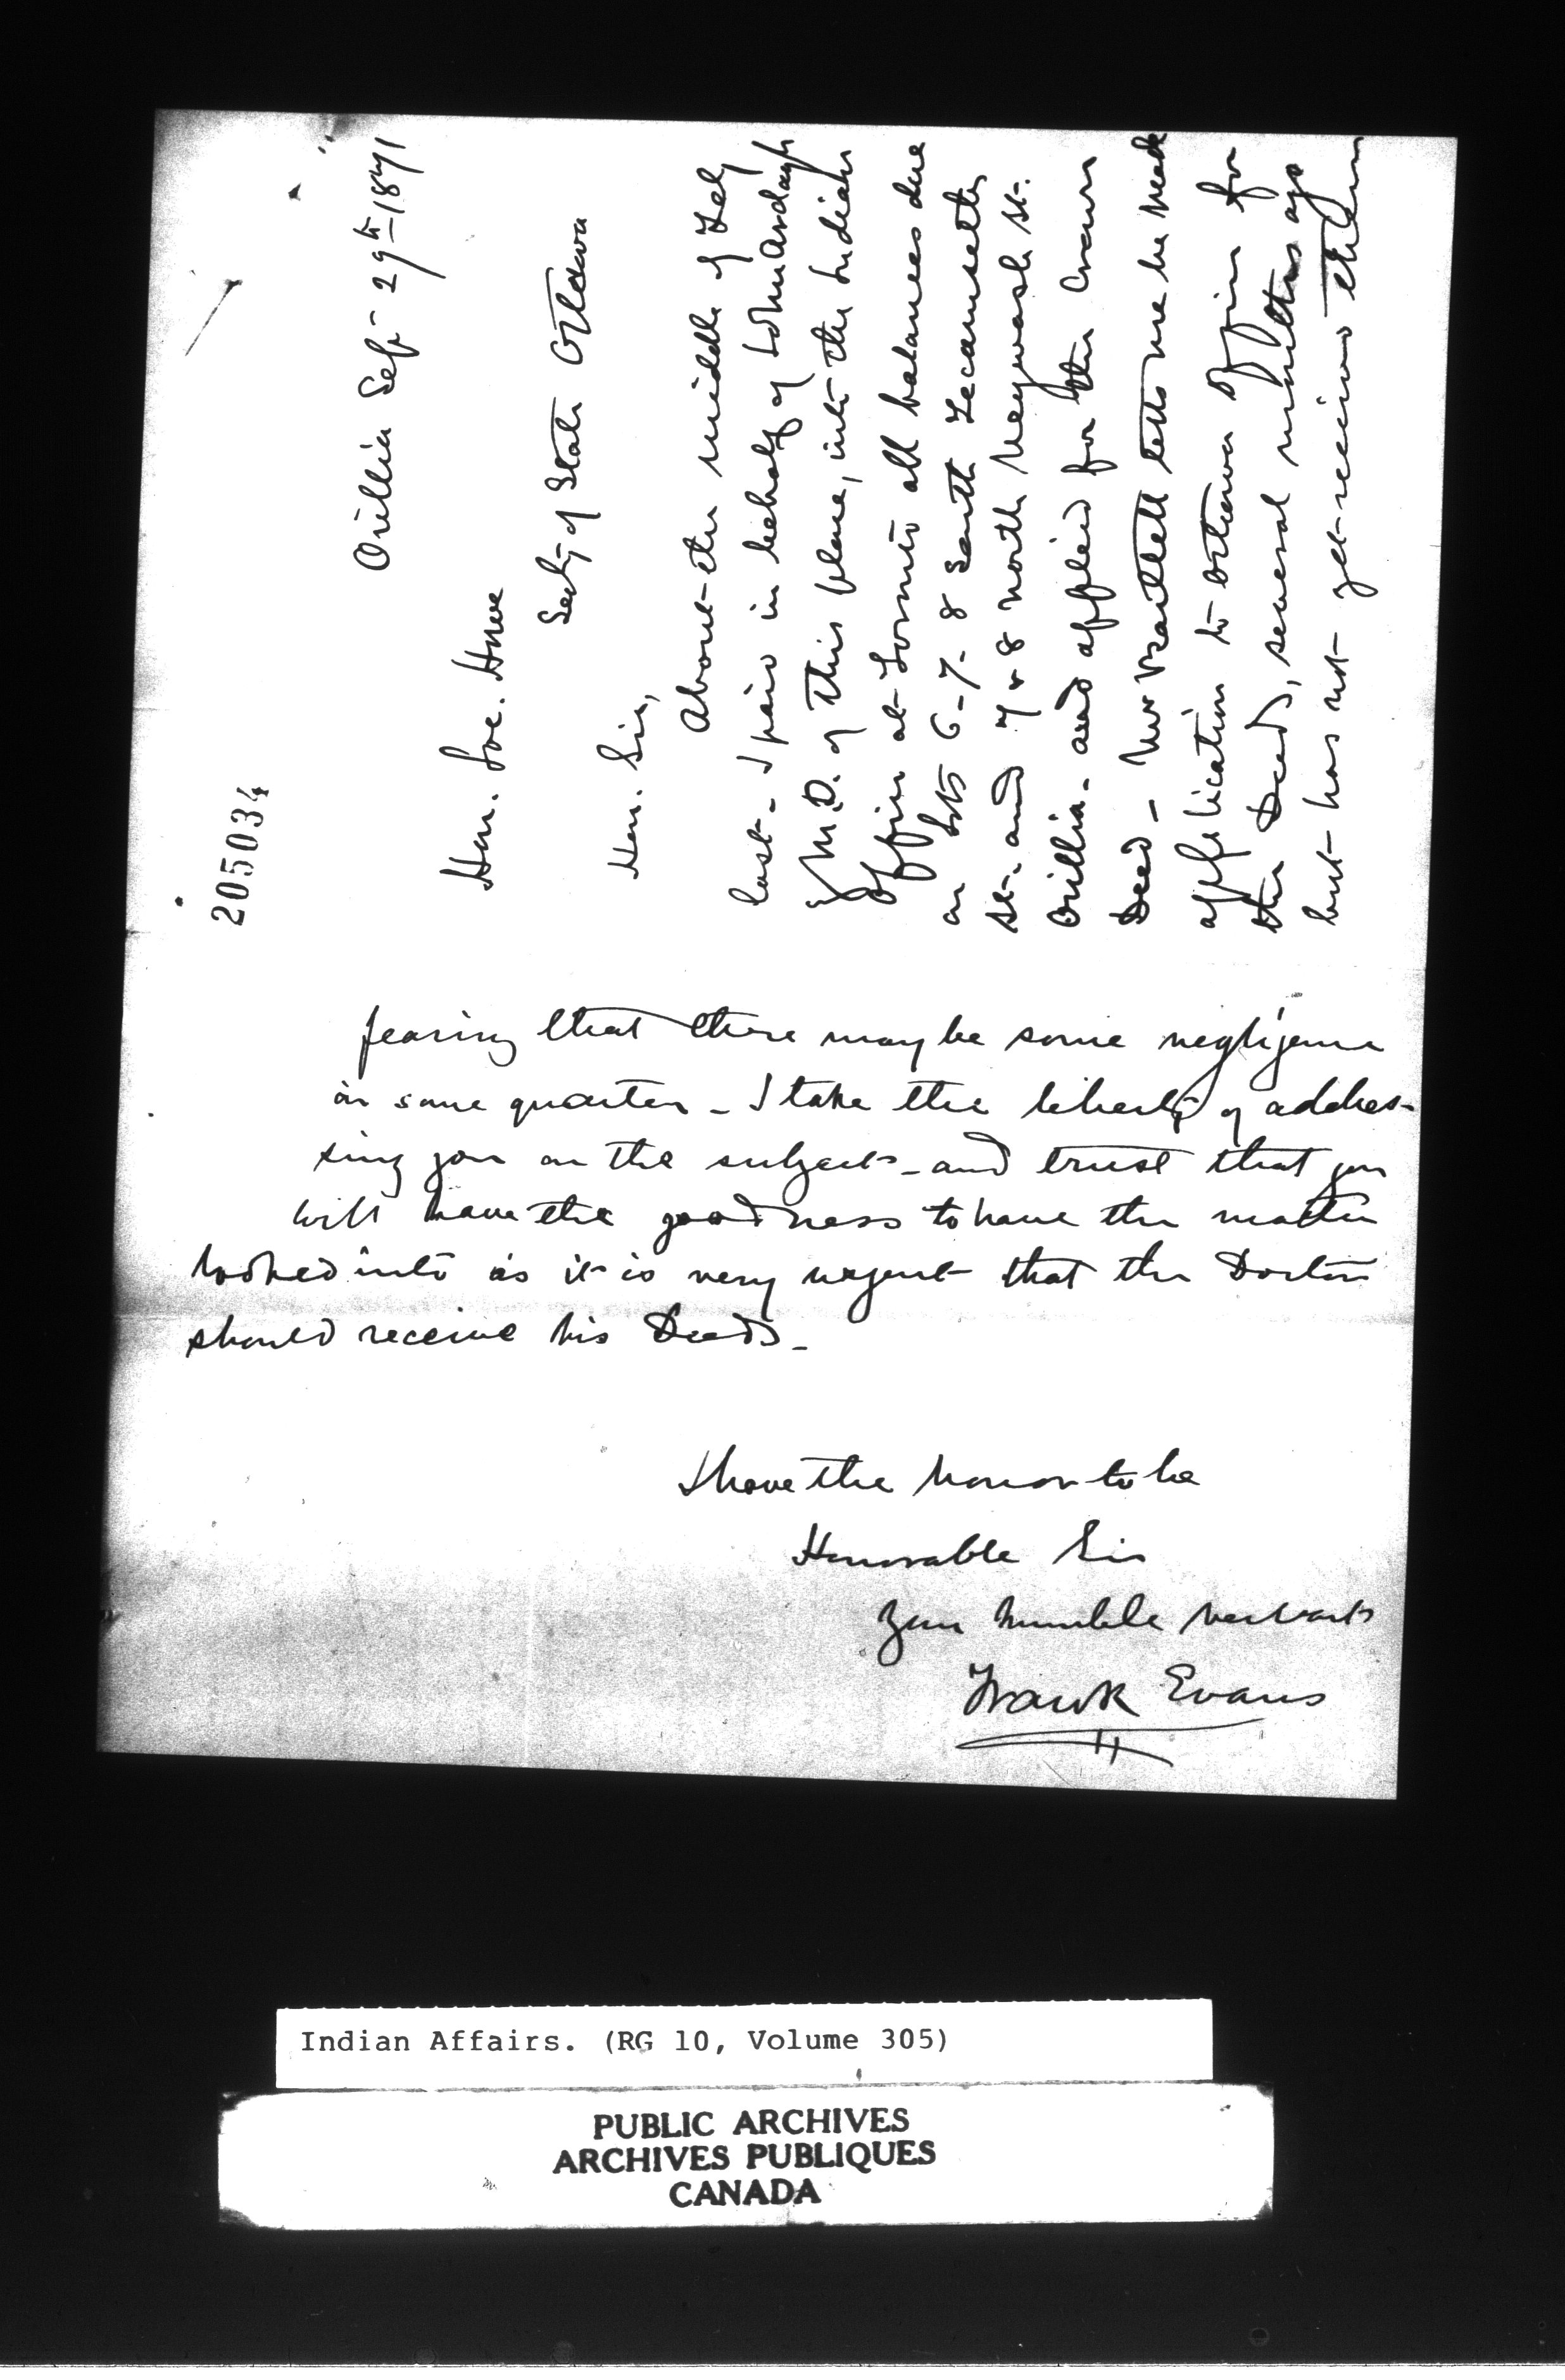 205034
Orillia Sep- 29th 1871
Hon. Joe. Howe
Secty of State Ottawa
Hon. Sir,
About the middle of Feby
last - I paid in behalf of John Ardagh
M.D. of this place, into the Indian
Office at Toronto all balances due
on Lots 6-7-8 South Tecumseth
St. and 7 & 8 North Neywash St.
Orillia - and applied for the Crown
Deed - Mr Bartlett tells me he made
application to Ottawa Office for
the Deeds, several months ago
but has not yet received them
fearing that there may be some negligence
in some quarter - I take the liberty of addres-
sing you on the subject - and trust that you
will have the goodness to have the matter
looked into as it is very urgent that the Doctor
should receive his Deeds -
I have the honor to be
Honorable Sir
Your humble servant
Frank Evans
Indian Affairs. (RG 10, Volume 305)
PUBLIC ARCHIVES
ARCHIVES PUBLIQUES
CANADA